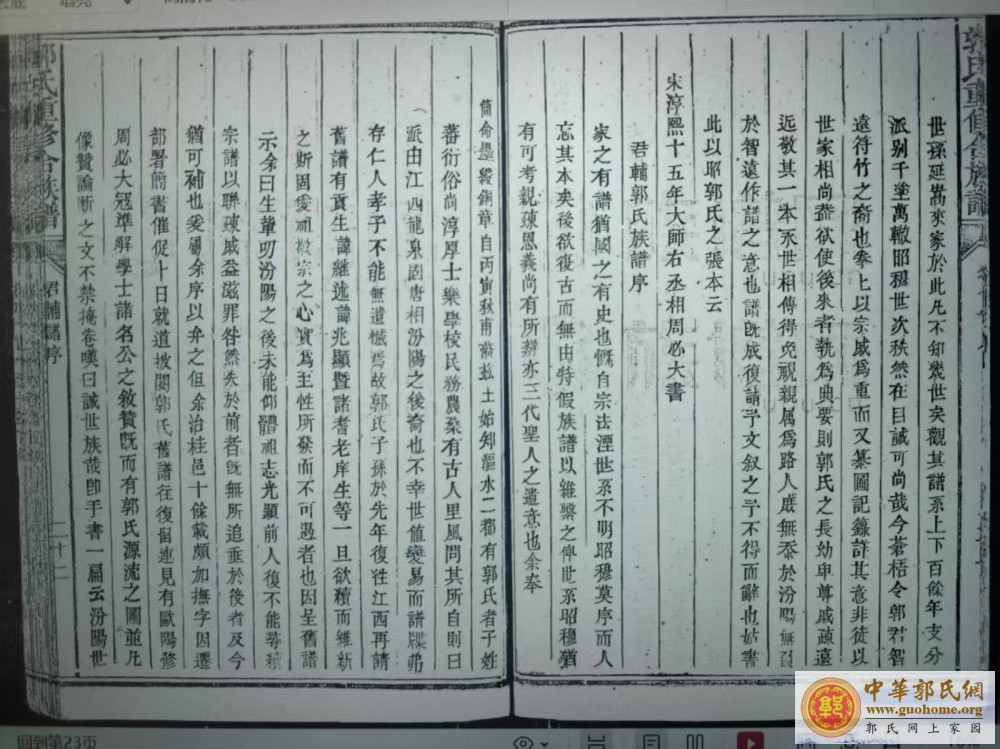 郭氏重修合族譜
世孫延嵩來家於此凡不知幾世矣觀其譜系上下百餘年支分
派别千塗萬轍昭穆世次秩然在目誠可尚哉今蒼梧令郭君智
遠符竹之裔也拳上以宗戚爲重而又纂圖記籙詳其意非徒以
世家相尚葢欲使後來者執爲典要則郭氏之長幼卑尊戚疎遠
近敬其一本永世相傳得免視親属爲路人戚無忝於汾陽無負
於智遠作譜之意也譜既成復請予文叙之予不得而辭也姑書
此以昭郭氏之張本云
宋淳熙十五年大師右丞相周必大書
君輔郭氏族譜序
家之有譜猶國之有史也慨自宗法湮世系不明昭穆莫序而人
忘其本矣後欲復古而無由特假族譜以維繫之俾世系昭穆猶
有可考親疎恩義尚有所辨亦三代聖人之遺意也余奉
簡命墨綬銅章自丙寅秋甫蒞兹土始知漚水二都有郭氏者子姓
蕃衍俗尚淳厚士樂學校民務農桑有古人里風問其所自則曰
派由江西龍泉固唐相汾陽之後裔也不幸世值變易而譜牒弗
存仁人孝子不能無遺憾焉故郭氏子孫於先年復往江西再請
舊譜有貢生諱繼述諱兆顯暨諸耆老庠生等一旦欲續而維新
之斯固愛祖敬宗之心實爲至性所發而不可遏者也因呈舊譜
示余曰生軰叨汾陽之後未能仰體祖志光顯前人復不能尋績
宗譜以聯疎戚益滋罪咎然失於前者既無所追垂於後者及今
猶可補也爰屬余序以弁之但余治桂邑十餘載頗加撫字因遷
部署簡書催促卜日就道披閱郭氏舊譜往復個連見有歐陽修
周必大冠準解學士諸名公之敘贊既而有郭氏源流之圖並凡
像贊論斷之文不禁掩卷嘆曰誠世族哉卽手書一扁云汾陽世
郭氏重修合族譜
君輔譜序
二十二
回到第23页
中華郭氏網
www.guohome.org
郭氏網上家园